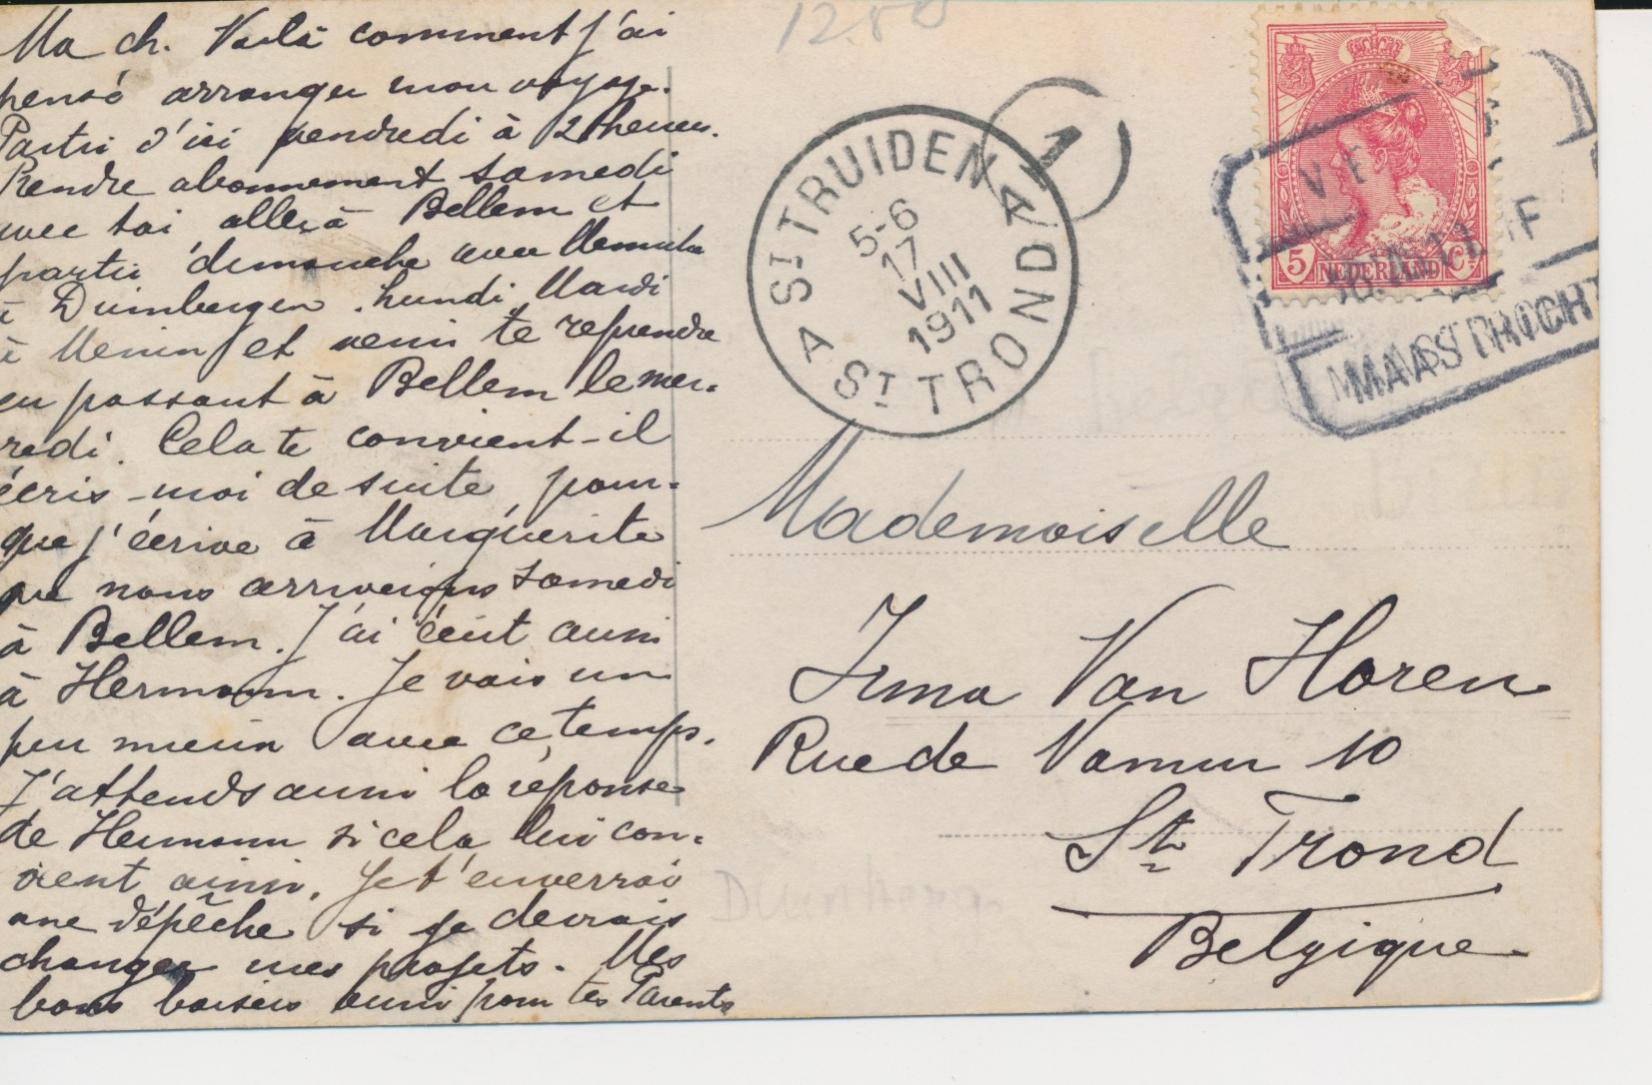 12.50
Ma ch. Voilà comment j'ai
pensé arranger mon voyage.
Partir d'ici vendredi à 2 heures.
Prendre abonnement samedi
avec toi aller à Bellem et
partir dimanche avec
à Duinbergen. Lundi Mardi
à Menin et venir te reprendre
en passant à Bellem le mer-
redi. Cela te convient-il
écris-moi de suite pour-
que j'écrive à Marguérite
que nous arriverons samedi
à Bellem. J'ai écrit aussi
à Hermann. Je vais un
peu mieux avec ce temps.
J'attends aussi la réponse
de Hermann si cela lui con-
vient ainsi. Je t'enverrai
une dépêche si je devrais
changer mes projets. Mes
bons baisers aussi pour tes Parents
ST TRUIDEN
5-6
17
VIII
1911
A ST TROND A
1
5 NEDERLAND Ct
MAASTRICHT
Mademoiselle
Irma Van Horen
Rue de Namur 10
St Trond
Belgique